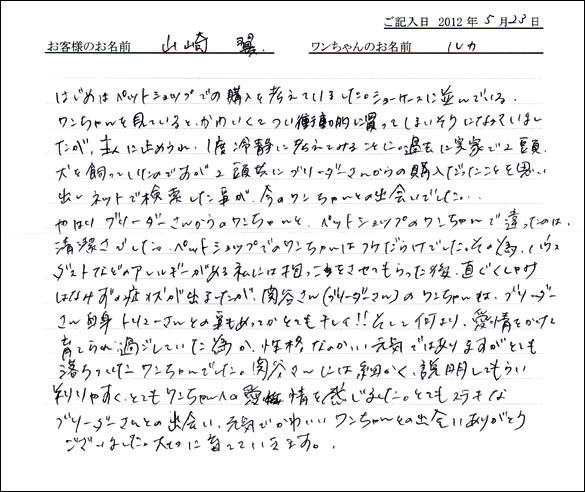 ご記入日 2012年5月23日
お客様のお名前 山崎 翼 ワンちゃんのお名前 ルカ
はじめはペットショップでの購入を考えていました。ショーケースに並んでいる
ワンちゃんを見ていると、かわいくてつい衝動的に買ってしまいそうになっていまし
たが、主人に止められ、1度冷静に考えてみることに。過去に実家で2頭
犬を飼っていたのですが2頭共にブリーダーさんからの購入だったことを思い
出しネットで検索した事が、今のワンちゃんとの出会いでした…
やはりブリーダーさんからのワンちゃんと、ペットショップのワンちゃんで違ったのは、
清潔さでした。ペットショップでのワンちゃんはフケだらけでした。その為、ハウス
ダストなどのアレルギーがある私には抱っこをさせてもらった後、直ぐくしゃみ
はなみずの症状が出ましたが、関谷さん(ブリーダーさん)のワンちゃんは、ブリーダー
さん自身トリマーさんとの事もあってかとてもキレイ!!そして何より、愛情をかけて
育てられ過ごしていた為か、性格なのかいい元気ではありますがとても
落ちついたワンちゃんでした。関谷さんには細かく、説明してもらい
判りやすく、とてもワンちゃんへの愛情を感じました。とてもステキな
ブリーダーさんとの出会い、元気でかわいいワンちゃんとの出会いありがとう
ございました。大切に育てていきます。